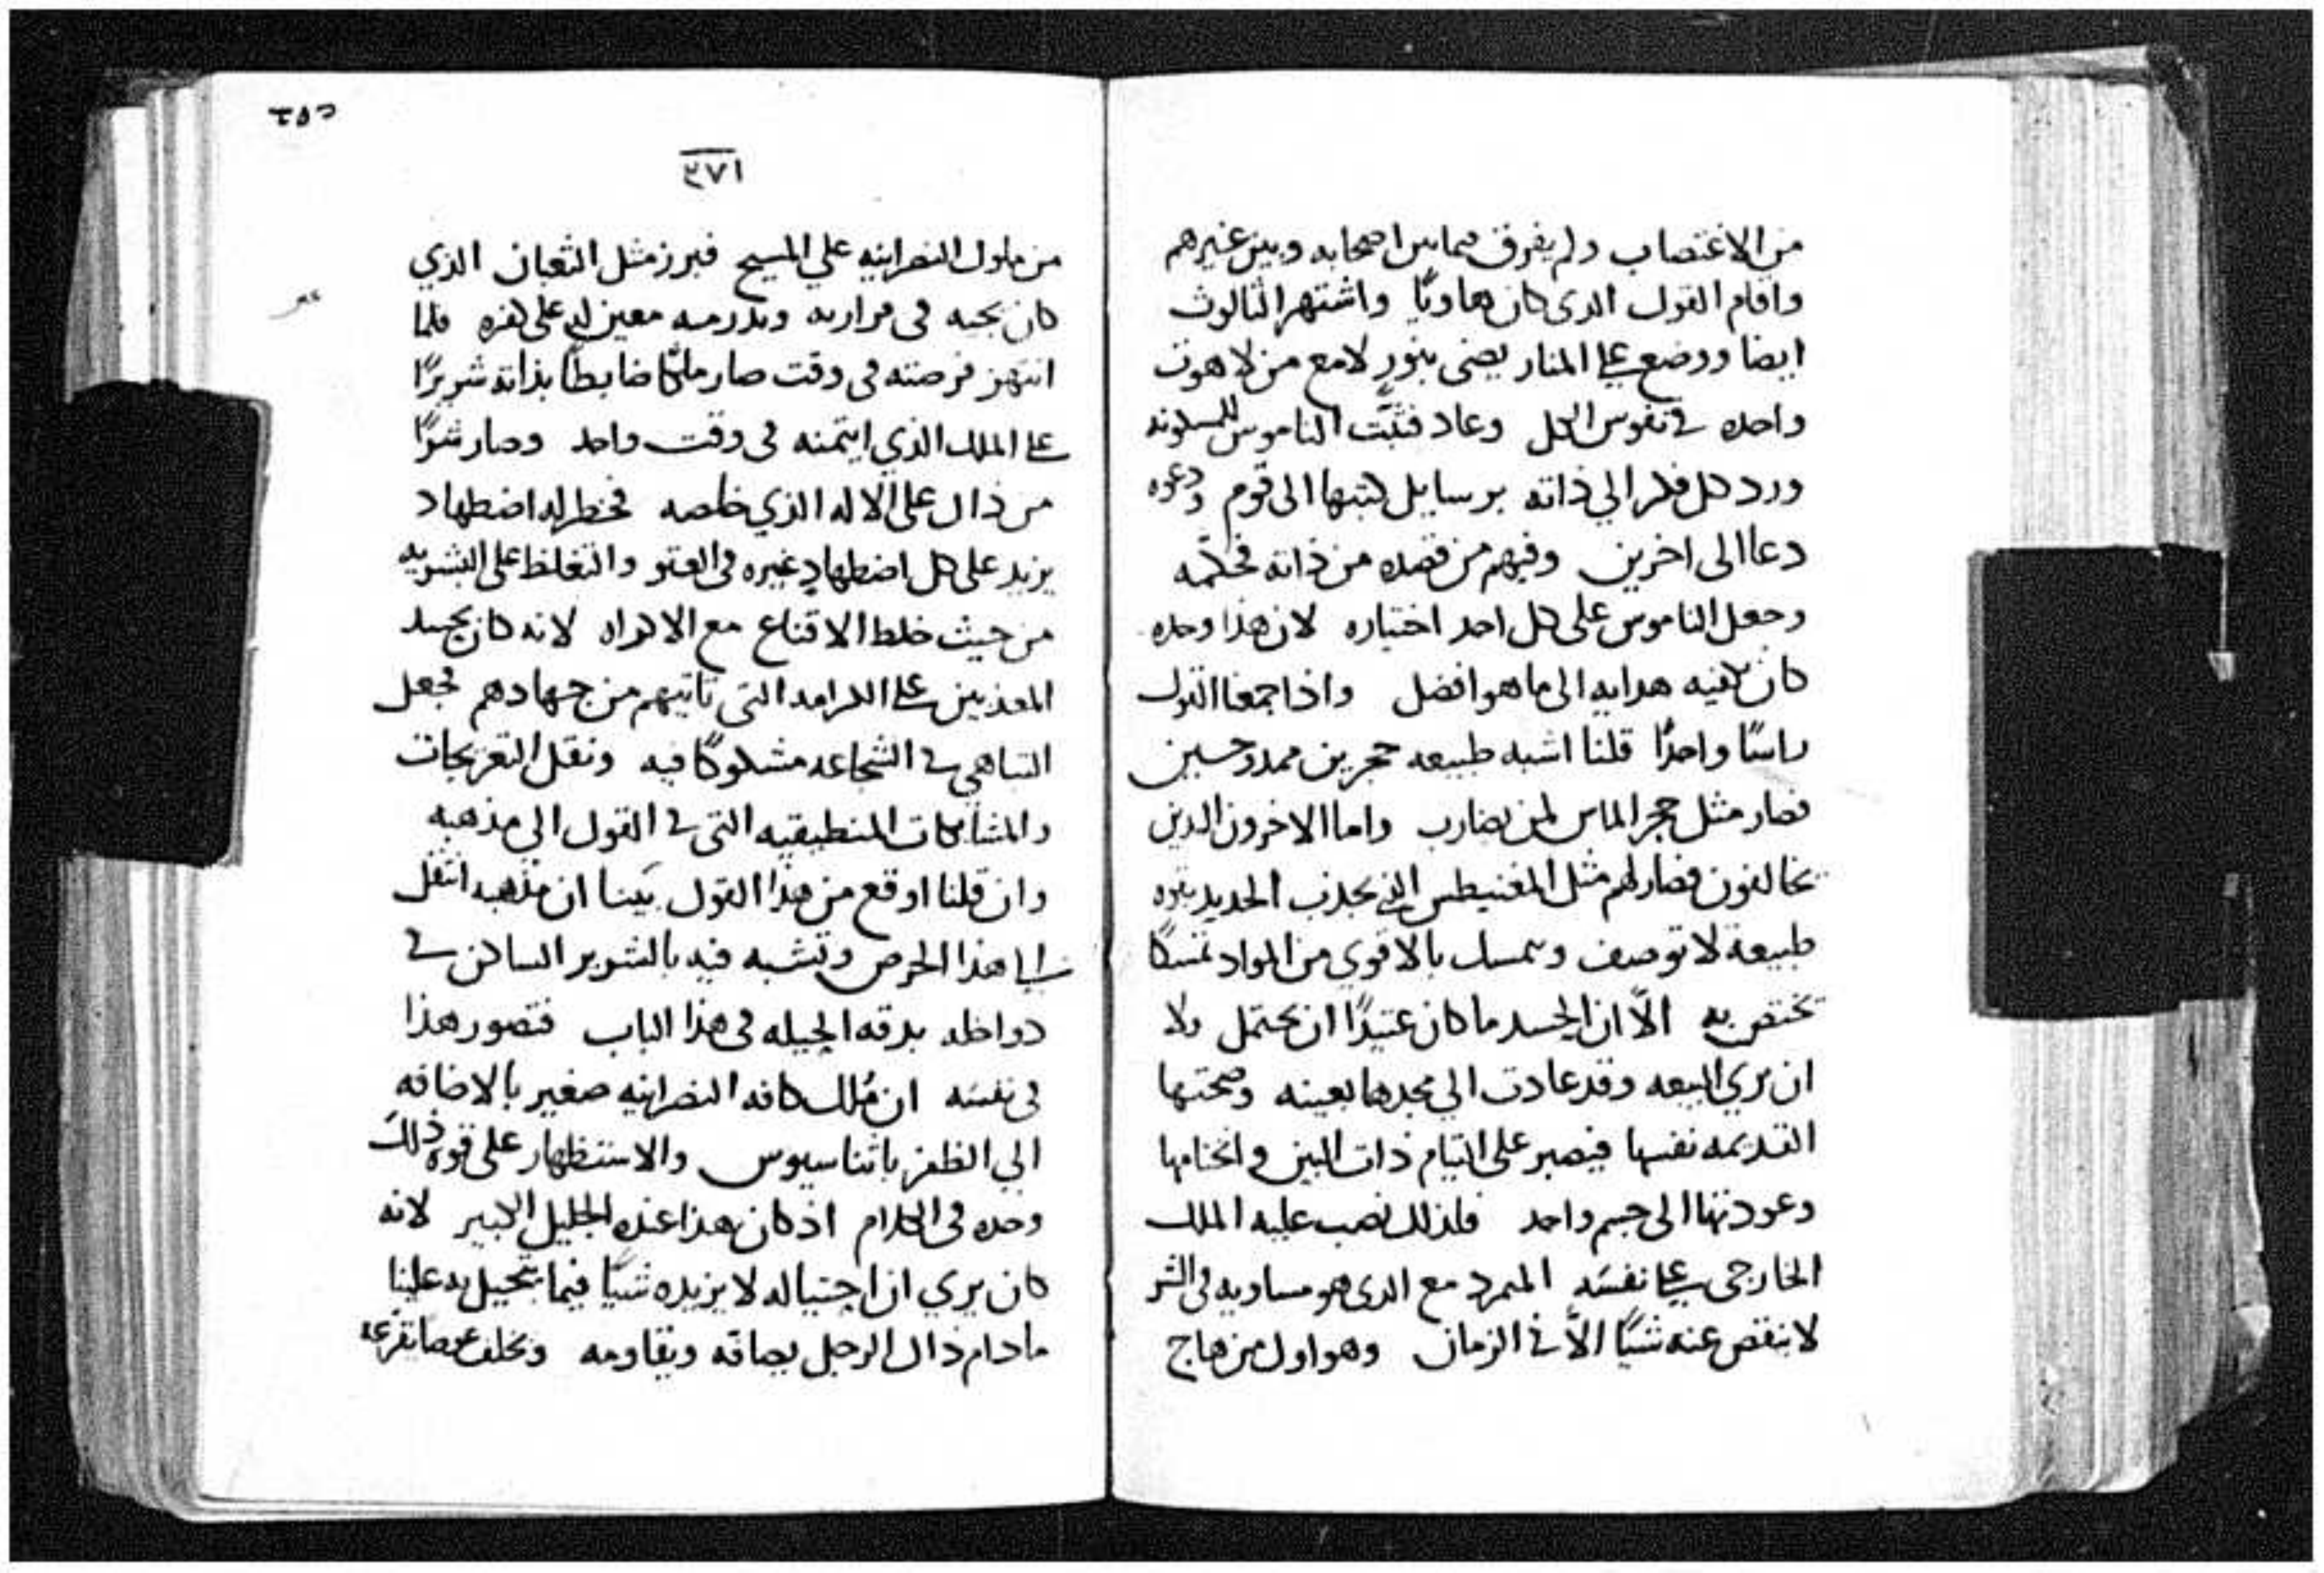 من الاغتصاب ولم يفرق فيما بين اصحابه وبين غيرهم
واقام القول الدى كان هاويًا واشتهر الثالوث
ايضا ووضع على المنار يضى بنور لامع من لاهوت
واحده في نفوس الكل وعاد فثبّت الناموس للمسكونه
ورد كل فكر الي ذاته برسايل كتبها الى قوم ودعوه
دعا الى اخرين وفيهم من قصده من ذاته فحكّمه
وجعل الناموس على كل احد اختياره لان هذا وحده
كان يكفيه هدايه الى ما هو افضل واذا جمعنا القول
راسًا واحدًا قلنا اشبه طبيعه حجرين ممدوحين
فصار مثل حجر الماس لمن يضارب واما الاخرون الدين
يخالفون فصار لهم مثل المغنيطس الذي يجذب الحديد بقوه
طبيعة لا توصف وتمسك بالاقوي من المواد تمسكًا
تختص به الّا ان الحسد ما كان عتيدًا ان يحتمل ولا
ان يري البيعه وقد عادت الي مجدها بعينه وصحتها
القديمه نفسها فيصبر على التيام ذات البين والختامها
وعودتها الى جسم واحد فلذلك نصب عليه الملك
الخارجى على نفسه المتمرد مع الدى هو مساويه فى الشر
لا ينقص عنه شيًا الّا في الزمان وهو اول من هاج
٢٥٢
٣٧١
من ملوك النصرانيه علي المسيح فبرز مثل الثعبان الذي
كان يحبه فى مراريه فلما
انتهز فرصته فى وقت صار ملكًا ضابطًا بذاته شريرًا
على الملك الذي ايتمنه فى وقت واحد وصار شرًا
من ذاك على الاله الذي خلصه فخطر له اضطهاد
يزيد على كل اضطهاد غيره فى العتو والتغلظ على البشريه
من حيث خلط الاقناع مع الاكراه لانه كان يحسد
المعذبين على الكرامه التي تاتيهم من جهادهم فجعل
التباهي في الشجاعه مشكوكًا فيه ونقل التعريجات
والمشابكات المنطيقيه التي في القول الي مذهبه
وان قلنا اوقع من هذا القول بَينا ان مذهبه انتقل
الى هذا الحرص وتشبه فيه بالشرير الساكن في
دواخله بدقه الحيله فى هذا الباب فتصور هذا
فى نفسَه ان مُلك كافه النصرانيه صغير بالاضافه
الي الظفر باثناسيوس والاستظهار على قوة ذلك
وحده فى الكلام اذ كان هذا عنده الجليل الكبير لانه
كان يري ان احتياله لا يزيده شيًا فيما يتحيل به علينا
ما دام ذاك الرجل يصافه ويقاومه